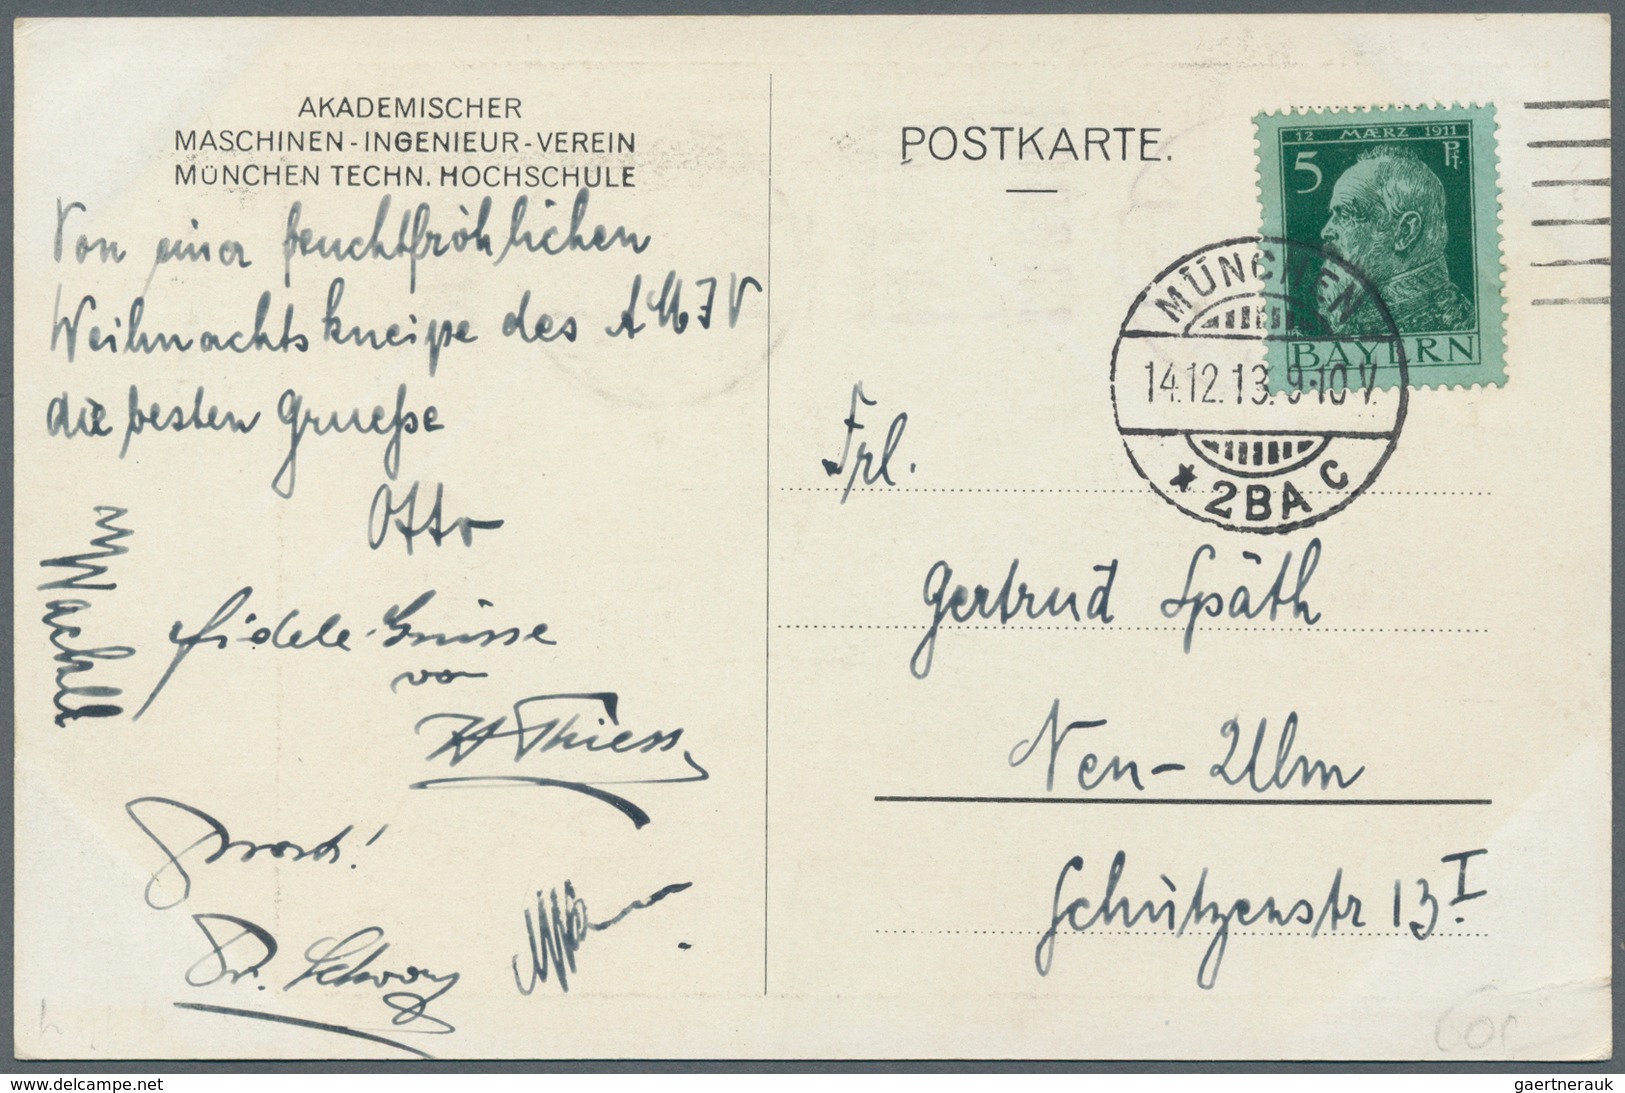 AKADEMISCHER
MASCHINEN-INGENIEUR-VEREIN
MÜNCHEN TECHN. HOCHSCHULE
Von einer feuchtfröhlichen
Weihnachtskneipe des AMIV
die besten Gruesse
Otto
fidele Grüsse
von
Thiess
Prost!
POSTKARTE.
12 MÆRZ 1911
5 Pf.
BAYERN
MÜNCHEN
14.12.13. 9-10 V.
* 2BA C
Frl.
Gertrud Späth
Neu-Ulm
Schützenstr 13 I.
www.delcampe.net
gaertnerauk